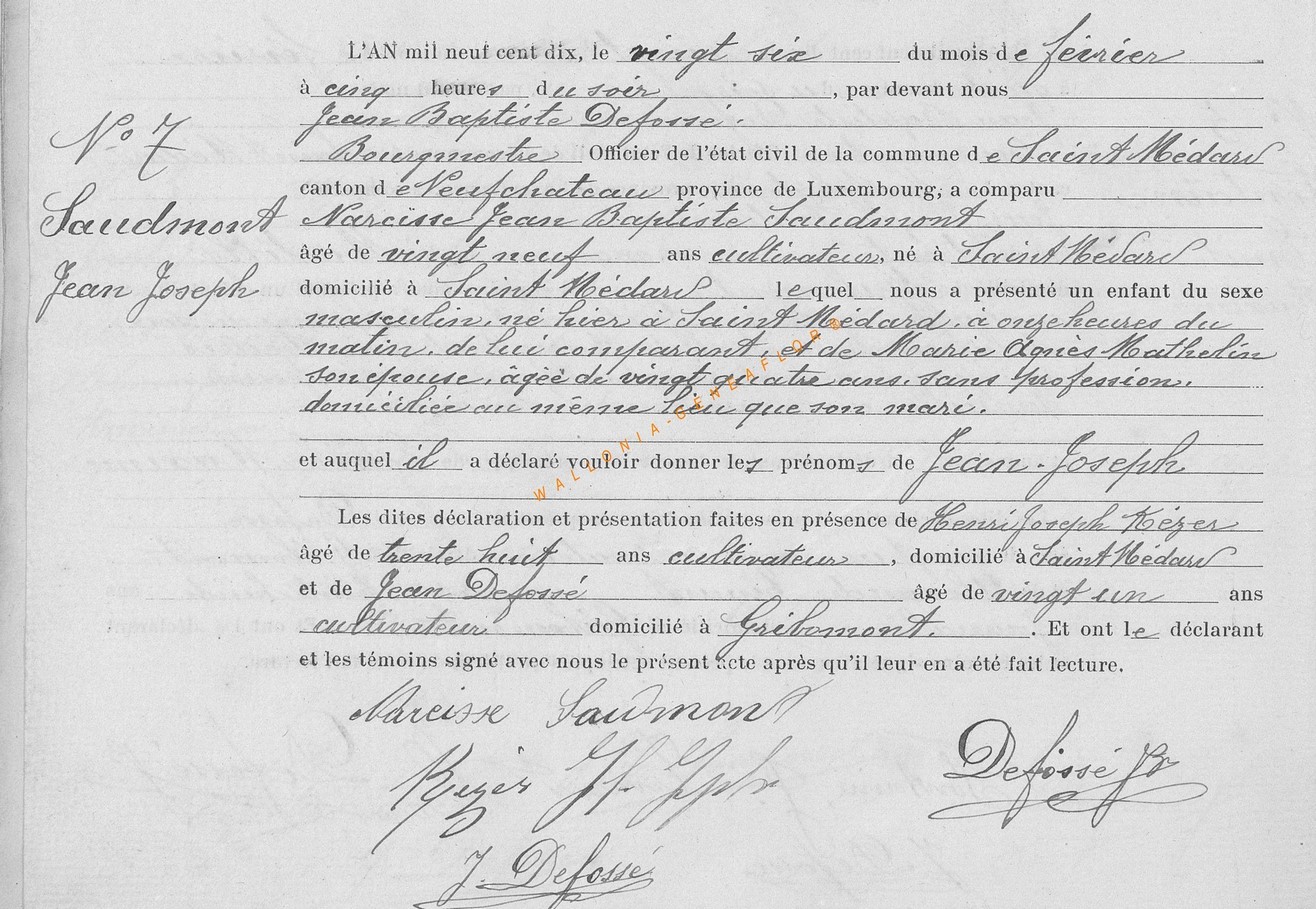 L'AN mil neuf cent dix, le vingt six du mois de février
à cinq heures du soir, par devant nous
Jean Baptiste Defossé.
N° 7
Bourgmestre Officier de l'état civil de la commune de Saint Médard
canton de Neufchateau province de Luxembourg, a comparu
Saudmont
Narcisse Jean Baptiste Saudmont
âgé de vingt neuf ans cultivateur, né à Saint Médard
Jean Joseph
domicilié à Saint Médard lequel nous a présenté un enfant du sexe
masculin, né hier à Saint Médard, à onze heures du
matin, de lui comparant, et de Marie Agnès Mathelin
son épouse, âgée de vingt quatre ans, sans profession,
domiciliée au même lieu que son mari.
WALLONIA-GENEAFLOR®
et auquel il a déclaré vouloir donner les prénoms de Jean-Joseph
Les dites déclaration et présentation faites en présence de Henri Joseph Kézer
âgé de trente huit ans cultivateur, domicilié à Saint Médard
et de Jean Defossé âgé de vingt un ans
cultivateur domicilié à Gribomont. . Et ont le déclarant
et les témoins signé avec nous le présent acte après qu'il leur en a été fait lecture.
Narcisse Saudmont
Kezer
Defossé JB
J. Defossé